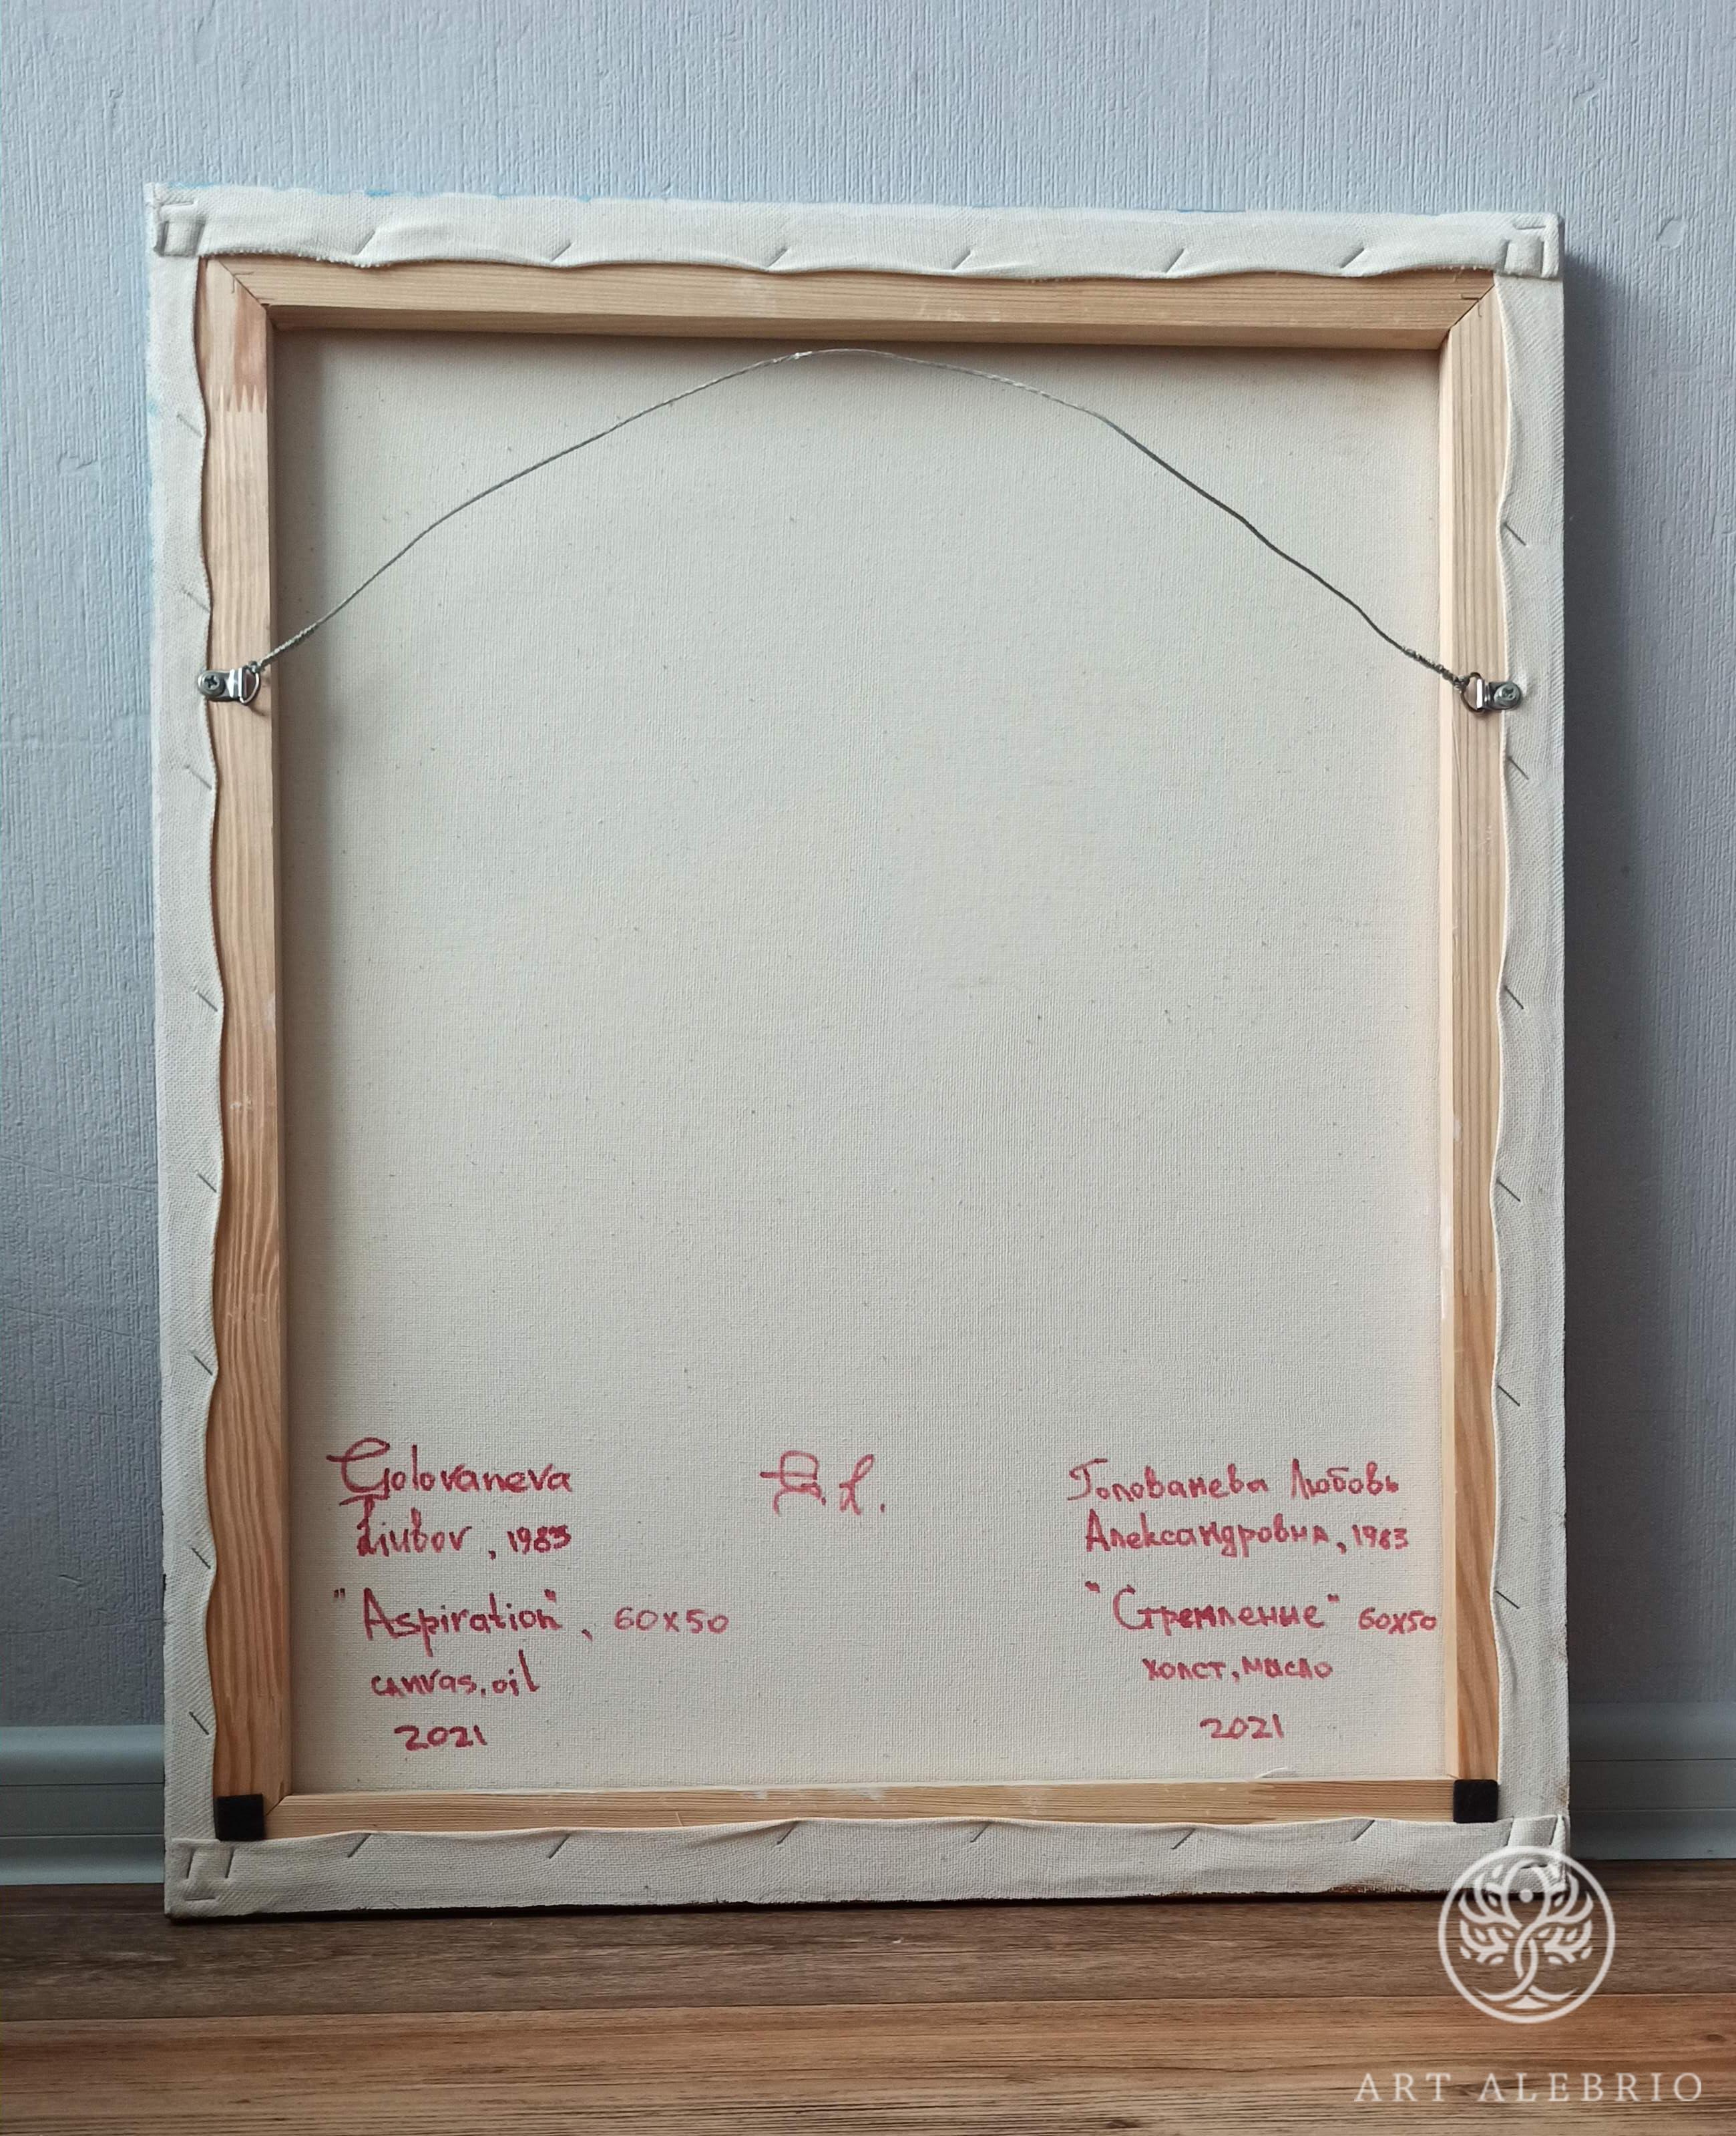 Golovaneva
Liubov, 1983
"Aspiration", 60x50
canvas, oil
2021
G.L.
Голованева Любовь
Александровна, 1983
"Стремление" 60x50
холст, масло
2021
ART ALEBRIO